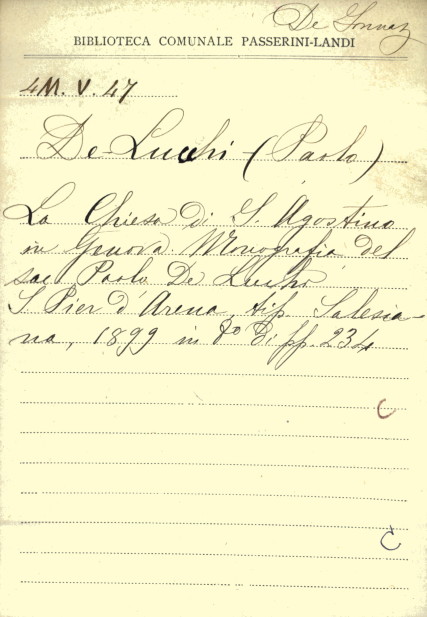 De Sonnaz
BIBLIOTECA COMUNALE PASSERINI-LANDI
4M. V. 47
De Lucchi (Paolo)
La Chiesa di S. Agostino
in Genova. Monografia del
sac Paolo De Lucchi
S. Pier d'Arena, tip. Salesia-
na, 1899 in 8º di pp. 234
C
C